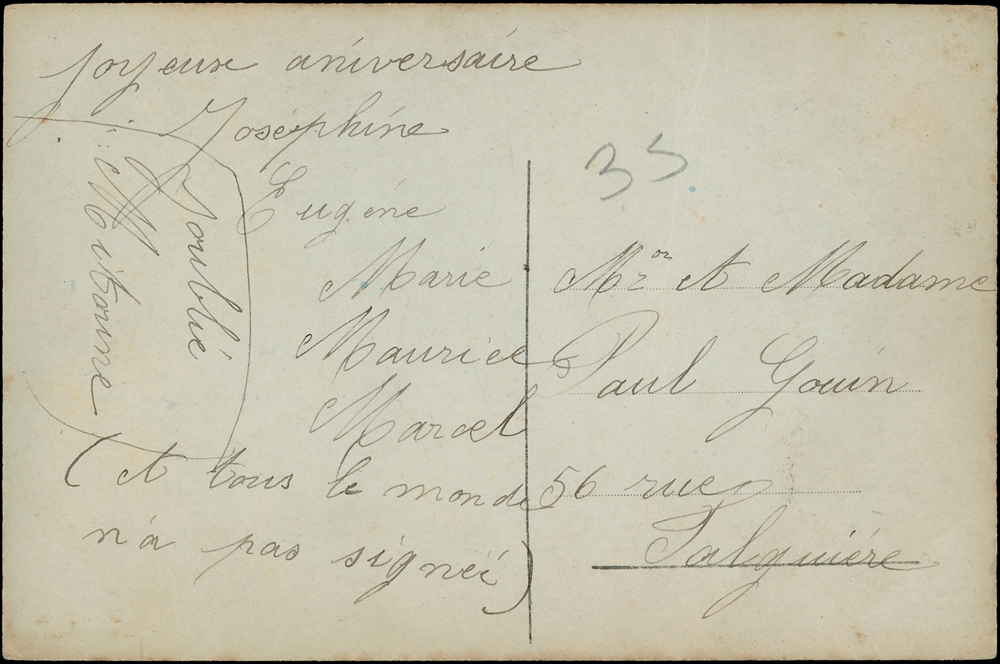 Joyeux aniversaire
Joséphine
Eugéne
Marie
Maurice
Marcel
(et tous le monde
n'a pas signéé)
J'oublié
Mitoune
35
Mr et Madame
Paul Gouin
56 rue
Falguiére